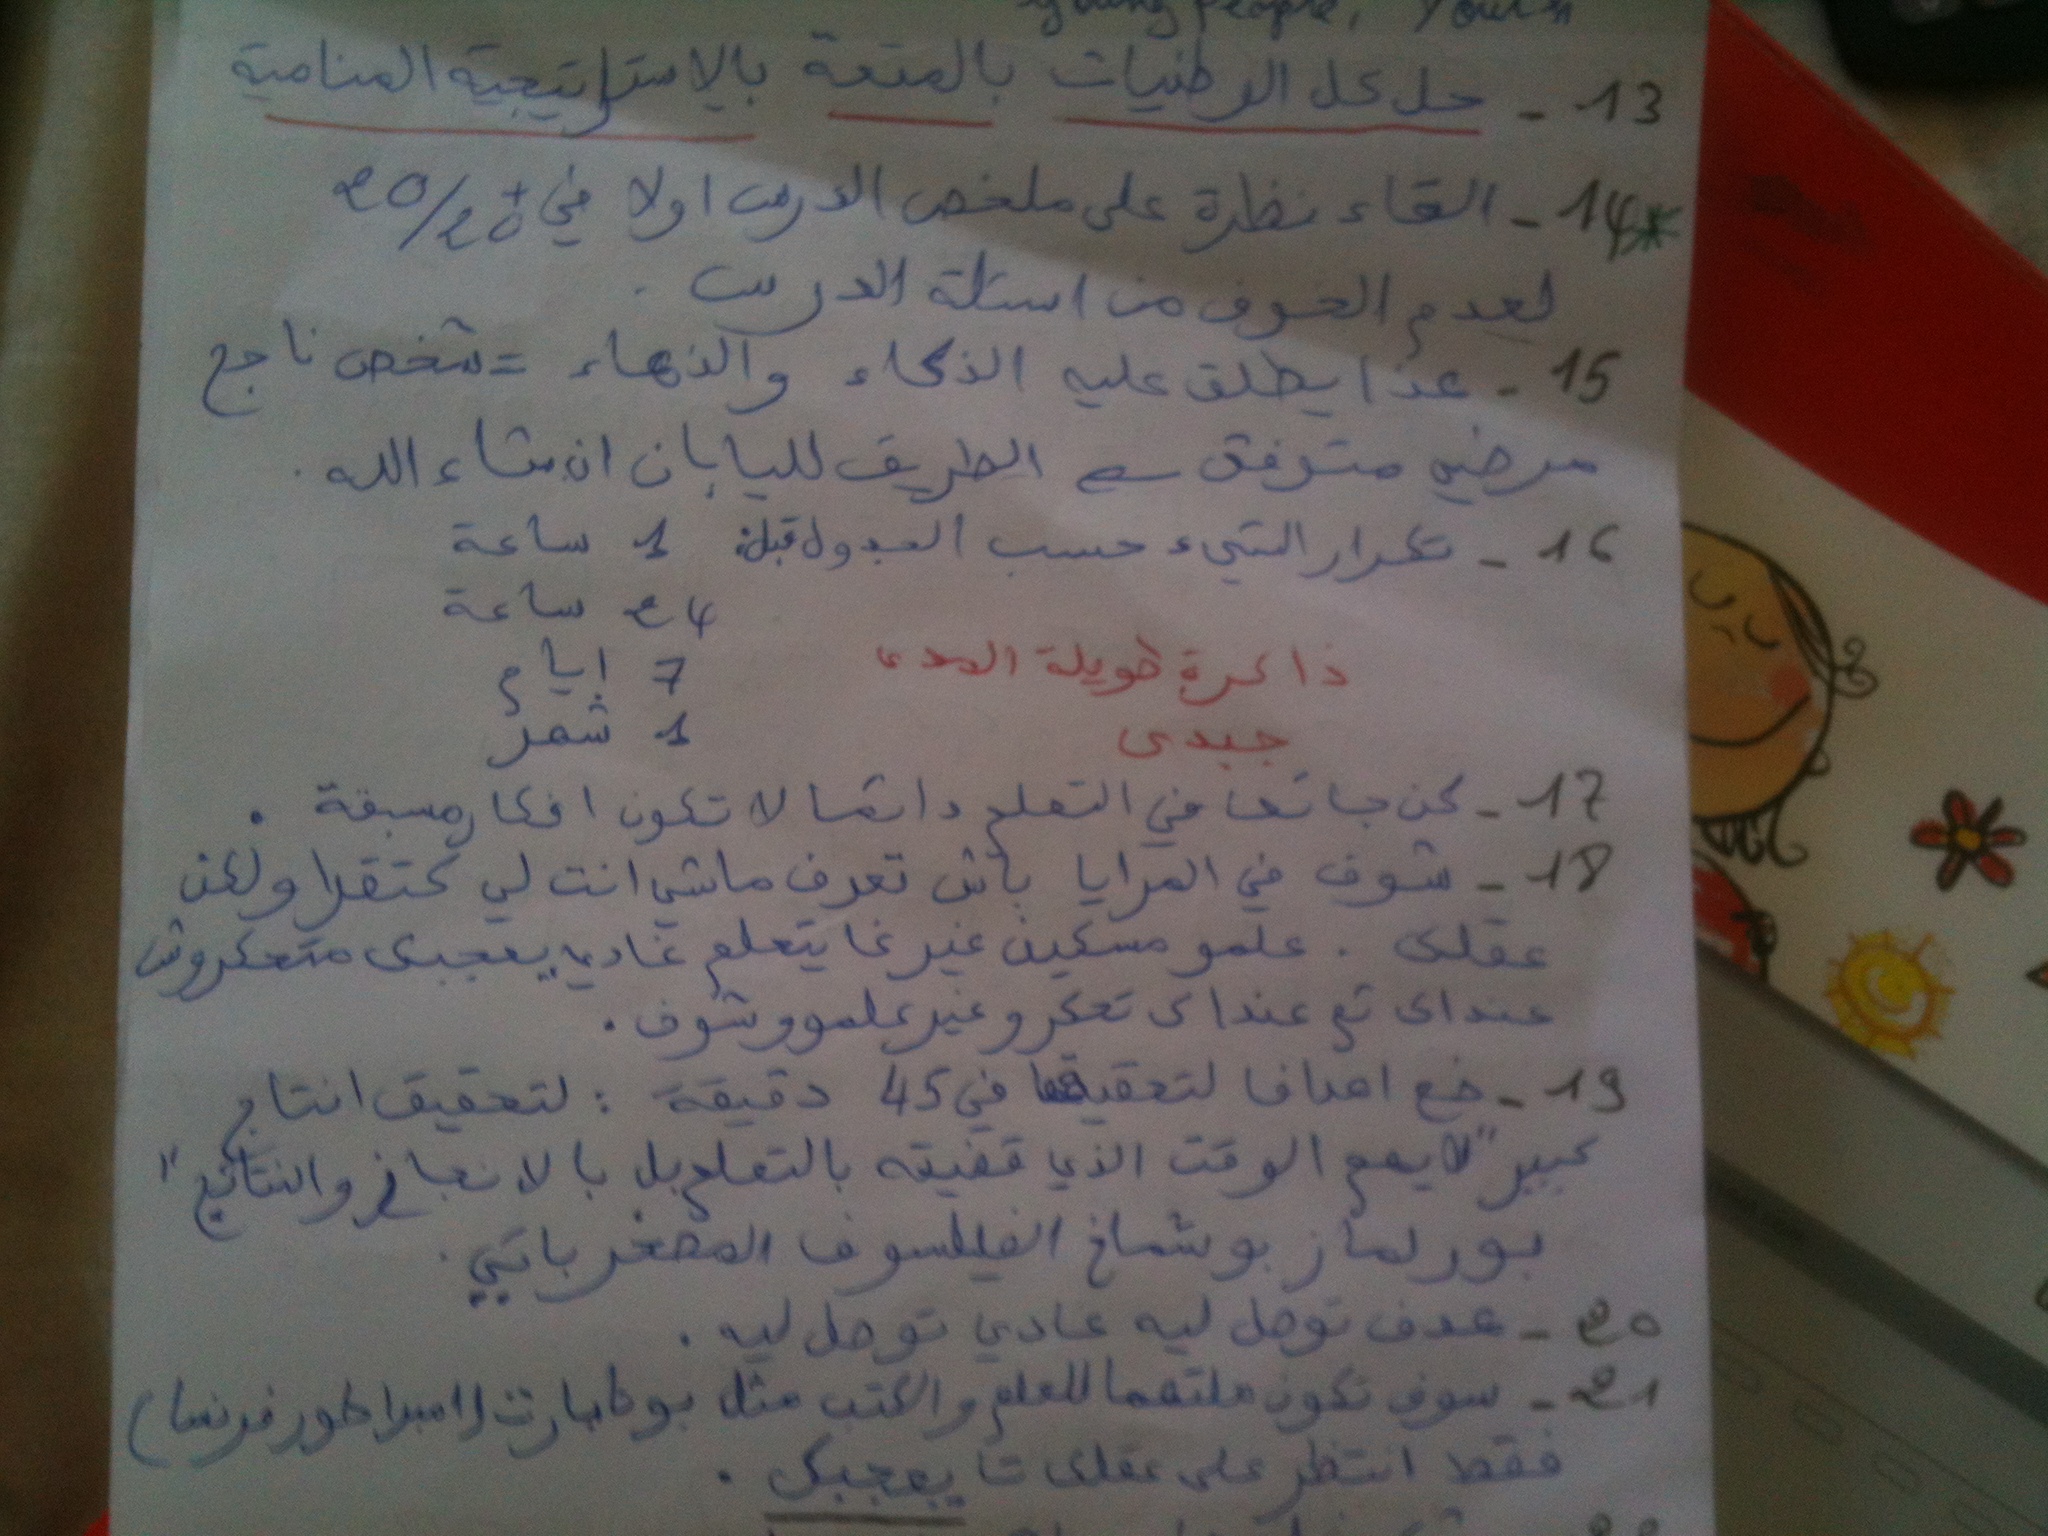 young people, Youth
13 - حل كل الوطنيات بالمتعة بالاستراتيجية المنامية
14* - القاء نظرة على ملخص الدرس اولا في 20/20+
لعدم الخوف من اسئلة الدرس .
15 - هذا يطلق عليه الذكاء والدهاء = شخص ناجح
مرضي متوفق الطريق لليابان ان شاء الله .
16 - تكرار الشيء حسب الجدول قبل: 1 ساعة
24 ساعة
ذاكرة طويلة المدى 7 ايام
جيدى 1 شهر
17 - كن جائعا في التعلم دائما لا تكون افكار مسبقة .
18 - شوف في المرايا باش تعرف ماشي انت لي كتقرا ولكن
عقلك . علمو مسكين غير غا يتعلم غادي يعجبك متحكروش
عنداك تم عنداك تحكرو غير علموو شوف .
19 - ضع اهدافا لتحقيقها في 45 دقيقة : لتحقيق انتاج
كبير "لا يهم الوقت الذي قضيته بالتعلم بل بالانجاز والنتائج"
بورلماز بوشماخ الفيلسوف
20 - هدف توصل ليه عادي توصل ليه .
21 - سوف تكون ملتهما للعلم والكتب مثل بونابارت (امبراطور فرنسا)
فقط انتظر على عقلك تا يعجبك .